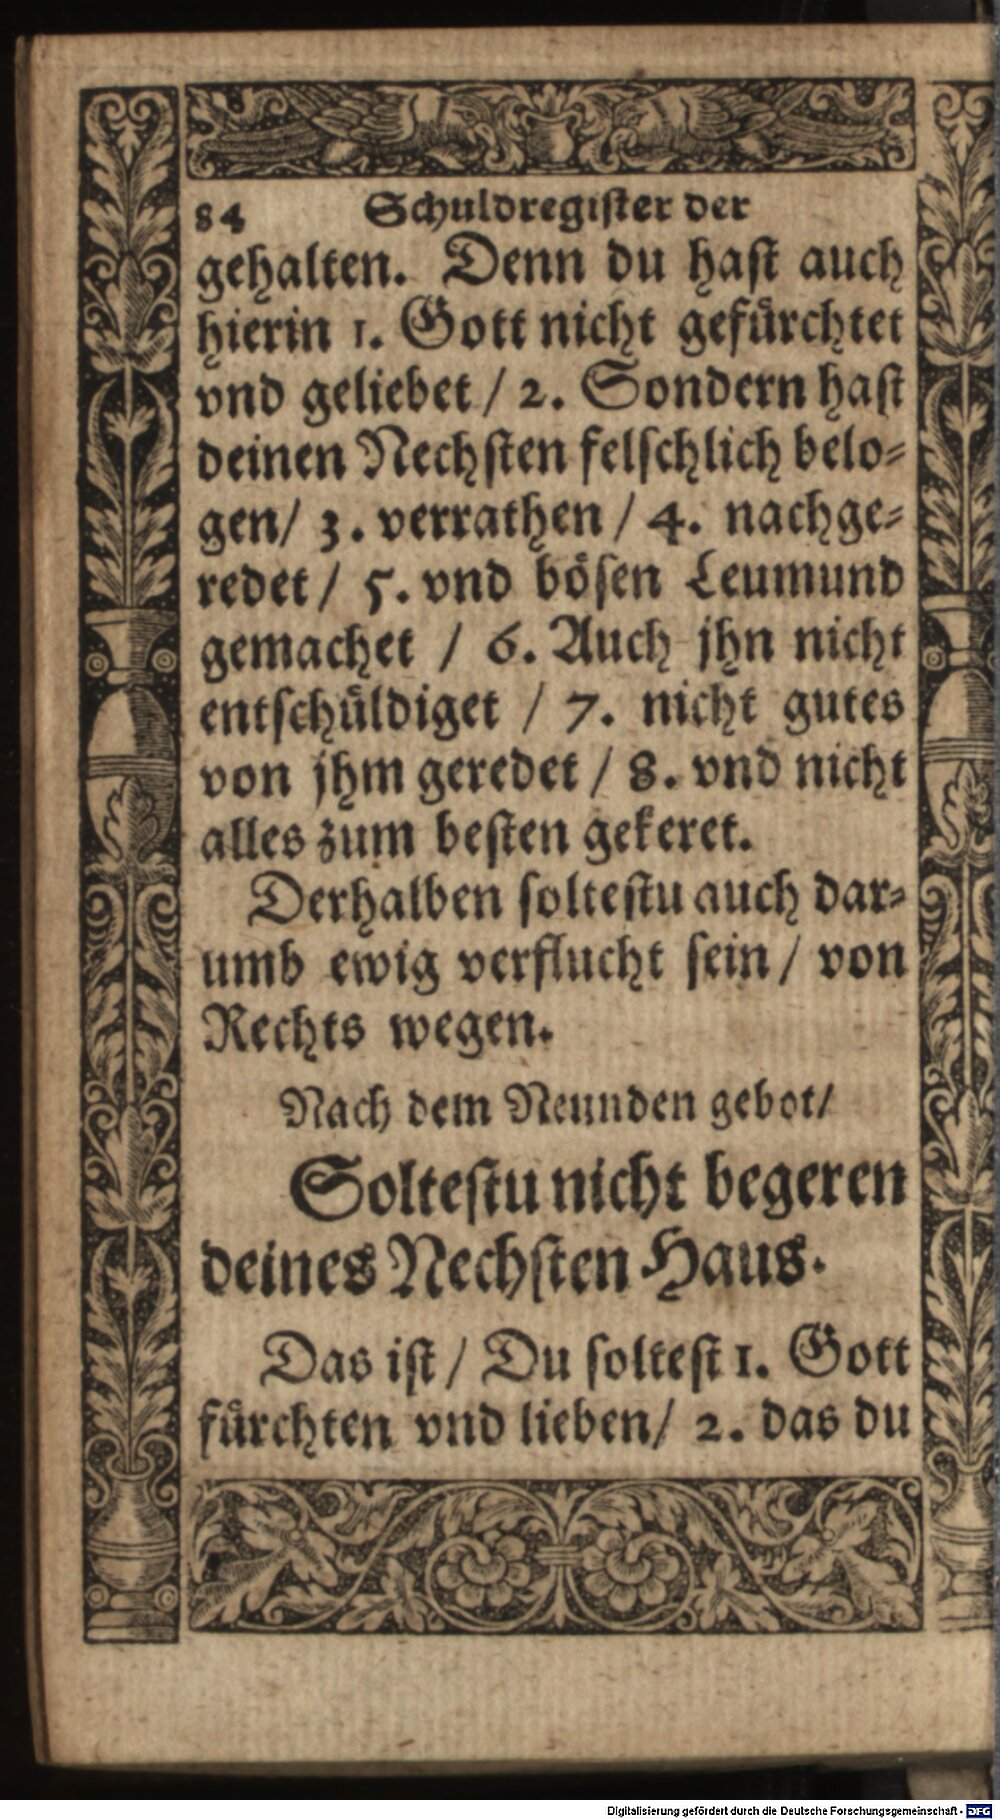 84 Schuldregister der
gehalten. Denn du hast auch
hierin 1. Gott nicht gefürchtet
vnd geliebet / 2. Sondern hast
deinen Nechsten felschlich belo⸗
gen/ 3. verrathen / 4. nachge⸗
redet / 5. vnd bösen Leumund
gemachet / 6. Auch jhn nicht
entschüldiget / 7. nicht gutes
von jhm geredet / 8. vnd nicht
alles zum besten gekeret.
Derhalben soltestu auch dar⸗
umb ewig verflucht sein / von
Rechts wegen.
Nach dem Neunden gebot/
Soltestu nicht begeren
deines Nechsten Haus.
Das ist / Du soltest 1. Gott
fürchten vnd lieben/ 2. das du
Digitalisierung gefördert durch die Deutsche Forschungsgemeinschaft - DFG